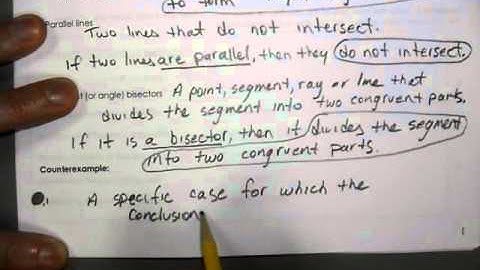 to form
Parallel lines
Two lines that do not intersect.
If two lines are parallel, then they do not intersect.
(or angle) bisectors A point, segment, ray or line that
divides the segment into two congruent parts.
If it is a bisector, then it divides the segment
into two congruent parts.
Counterexample:
A specific case for which the
conclusion